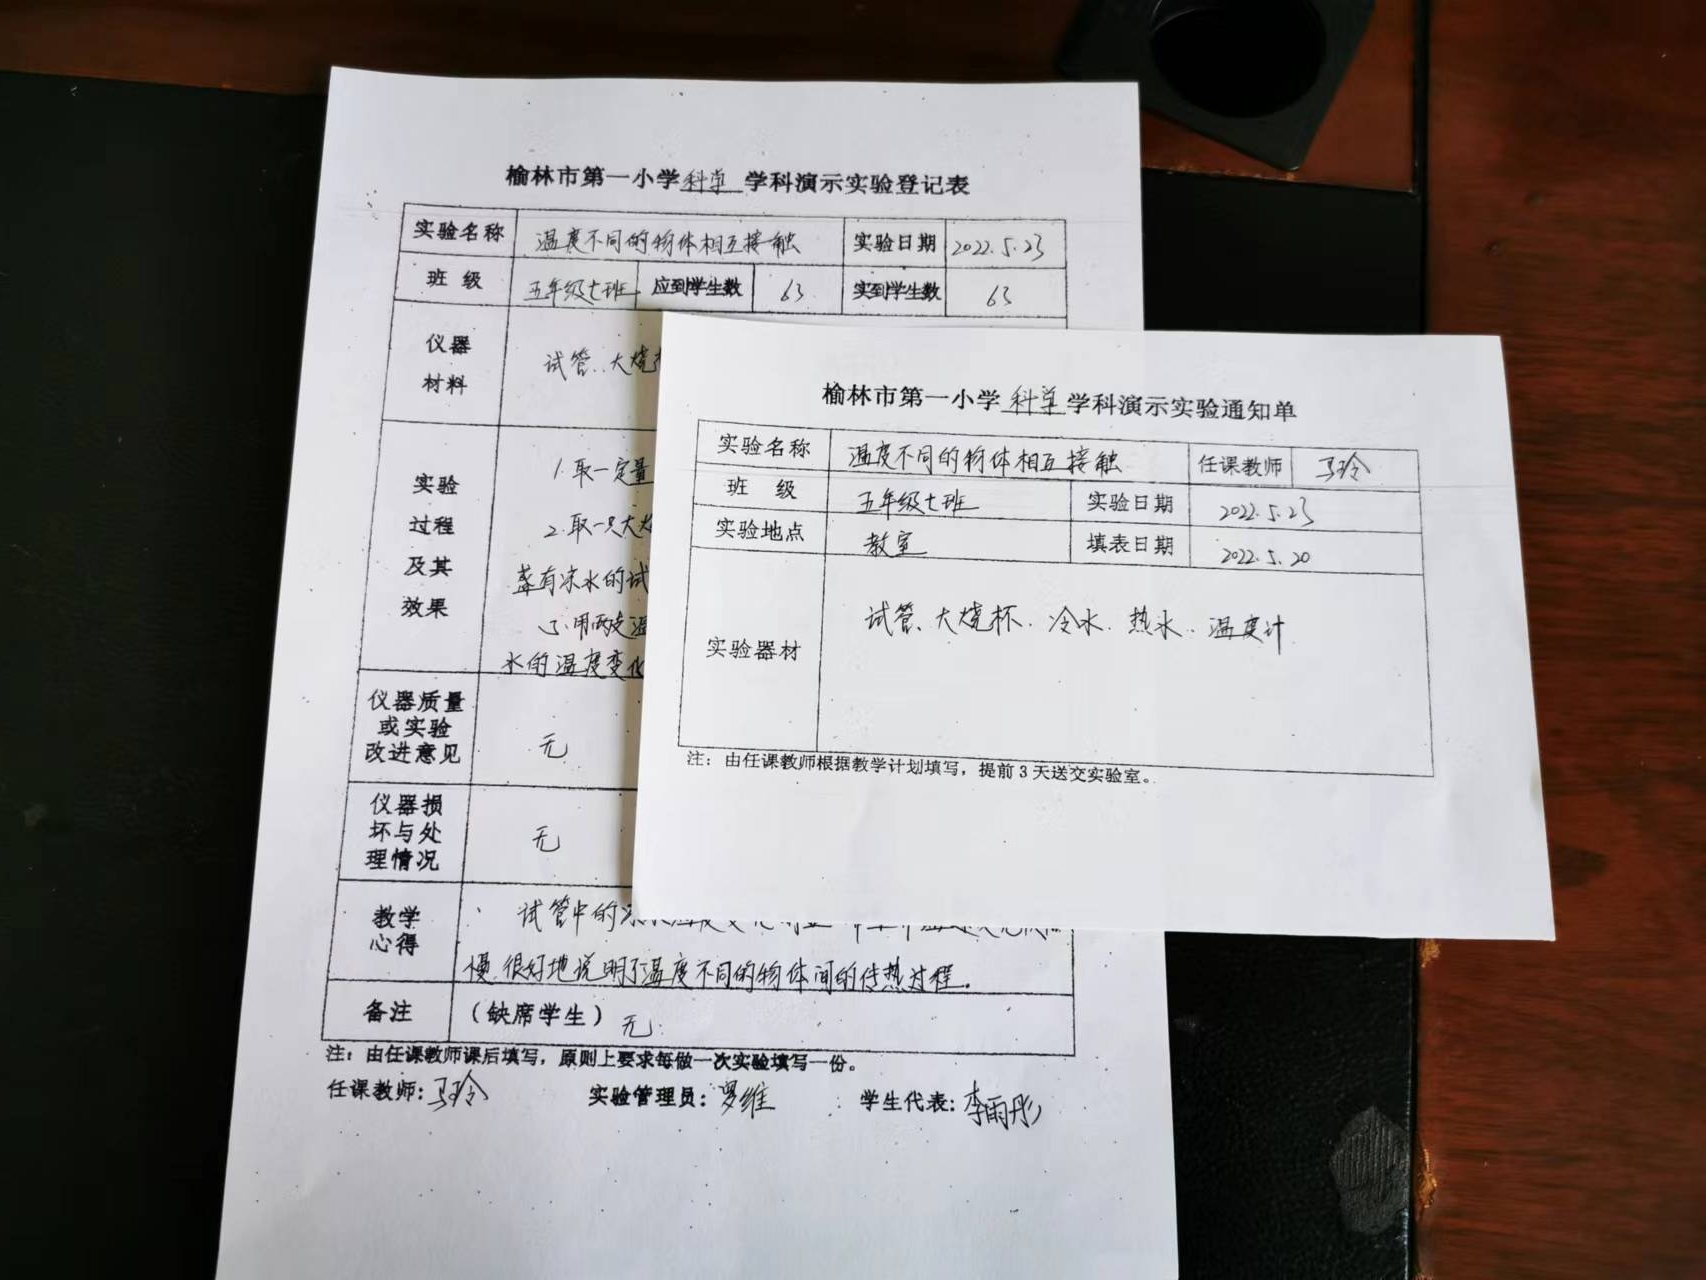 榆林市第一小学科学学科演示实验登记表
实验名称 温度不同的物体相互接触 实验日期 2022.5.23
班 级 五年级七班 应到学生数 63 实到学生数 63
仪器
材料
试管、大烧
实验
过程
及其
效果
1.取一定量
2.取一只大
盖有凉水的试
3.用两支温
水的温度变化
仪器质量
或实验
改进意见
无
仪器损
坏与处
理情况
无
教学
心得
试管中的
慢,很好地说明了温度不同的物体间的传热过程。
备注 (缺席学生) 无.
注:由任课教师课后填写,原则上要求每做一次实验填写一份。
任课教师:马玲 实验管理员:罗维 学生代表:李雨彤
榆林市第一小学科学学科演示实验通知单
实验名称 温度不同的物体相互接触 任课教师 马玲
班 级 五年级七班 实验日期 2022.5.23
实验地点 教室 填表日期 2022.5.20
实验器材 试管、大烧杯、冷水、热水、温度计
注:由任课教师根据教学计划填写,提前3天送交实验室。